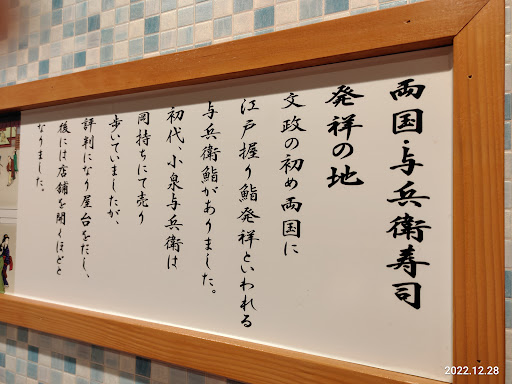 両国・与兵衛寿司
発祥の地
文政の初め両国に
江戸握り鮨発祥といわれる
与兵衛鮨がありました。
初代 小泉与兵衛は
岡持ちにて売り
歩いていましたが、
評判になり屋台をだし、
後には店舗を開くほどと
なりました。
2022.12.28